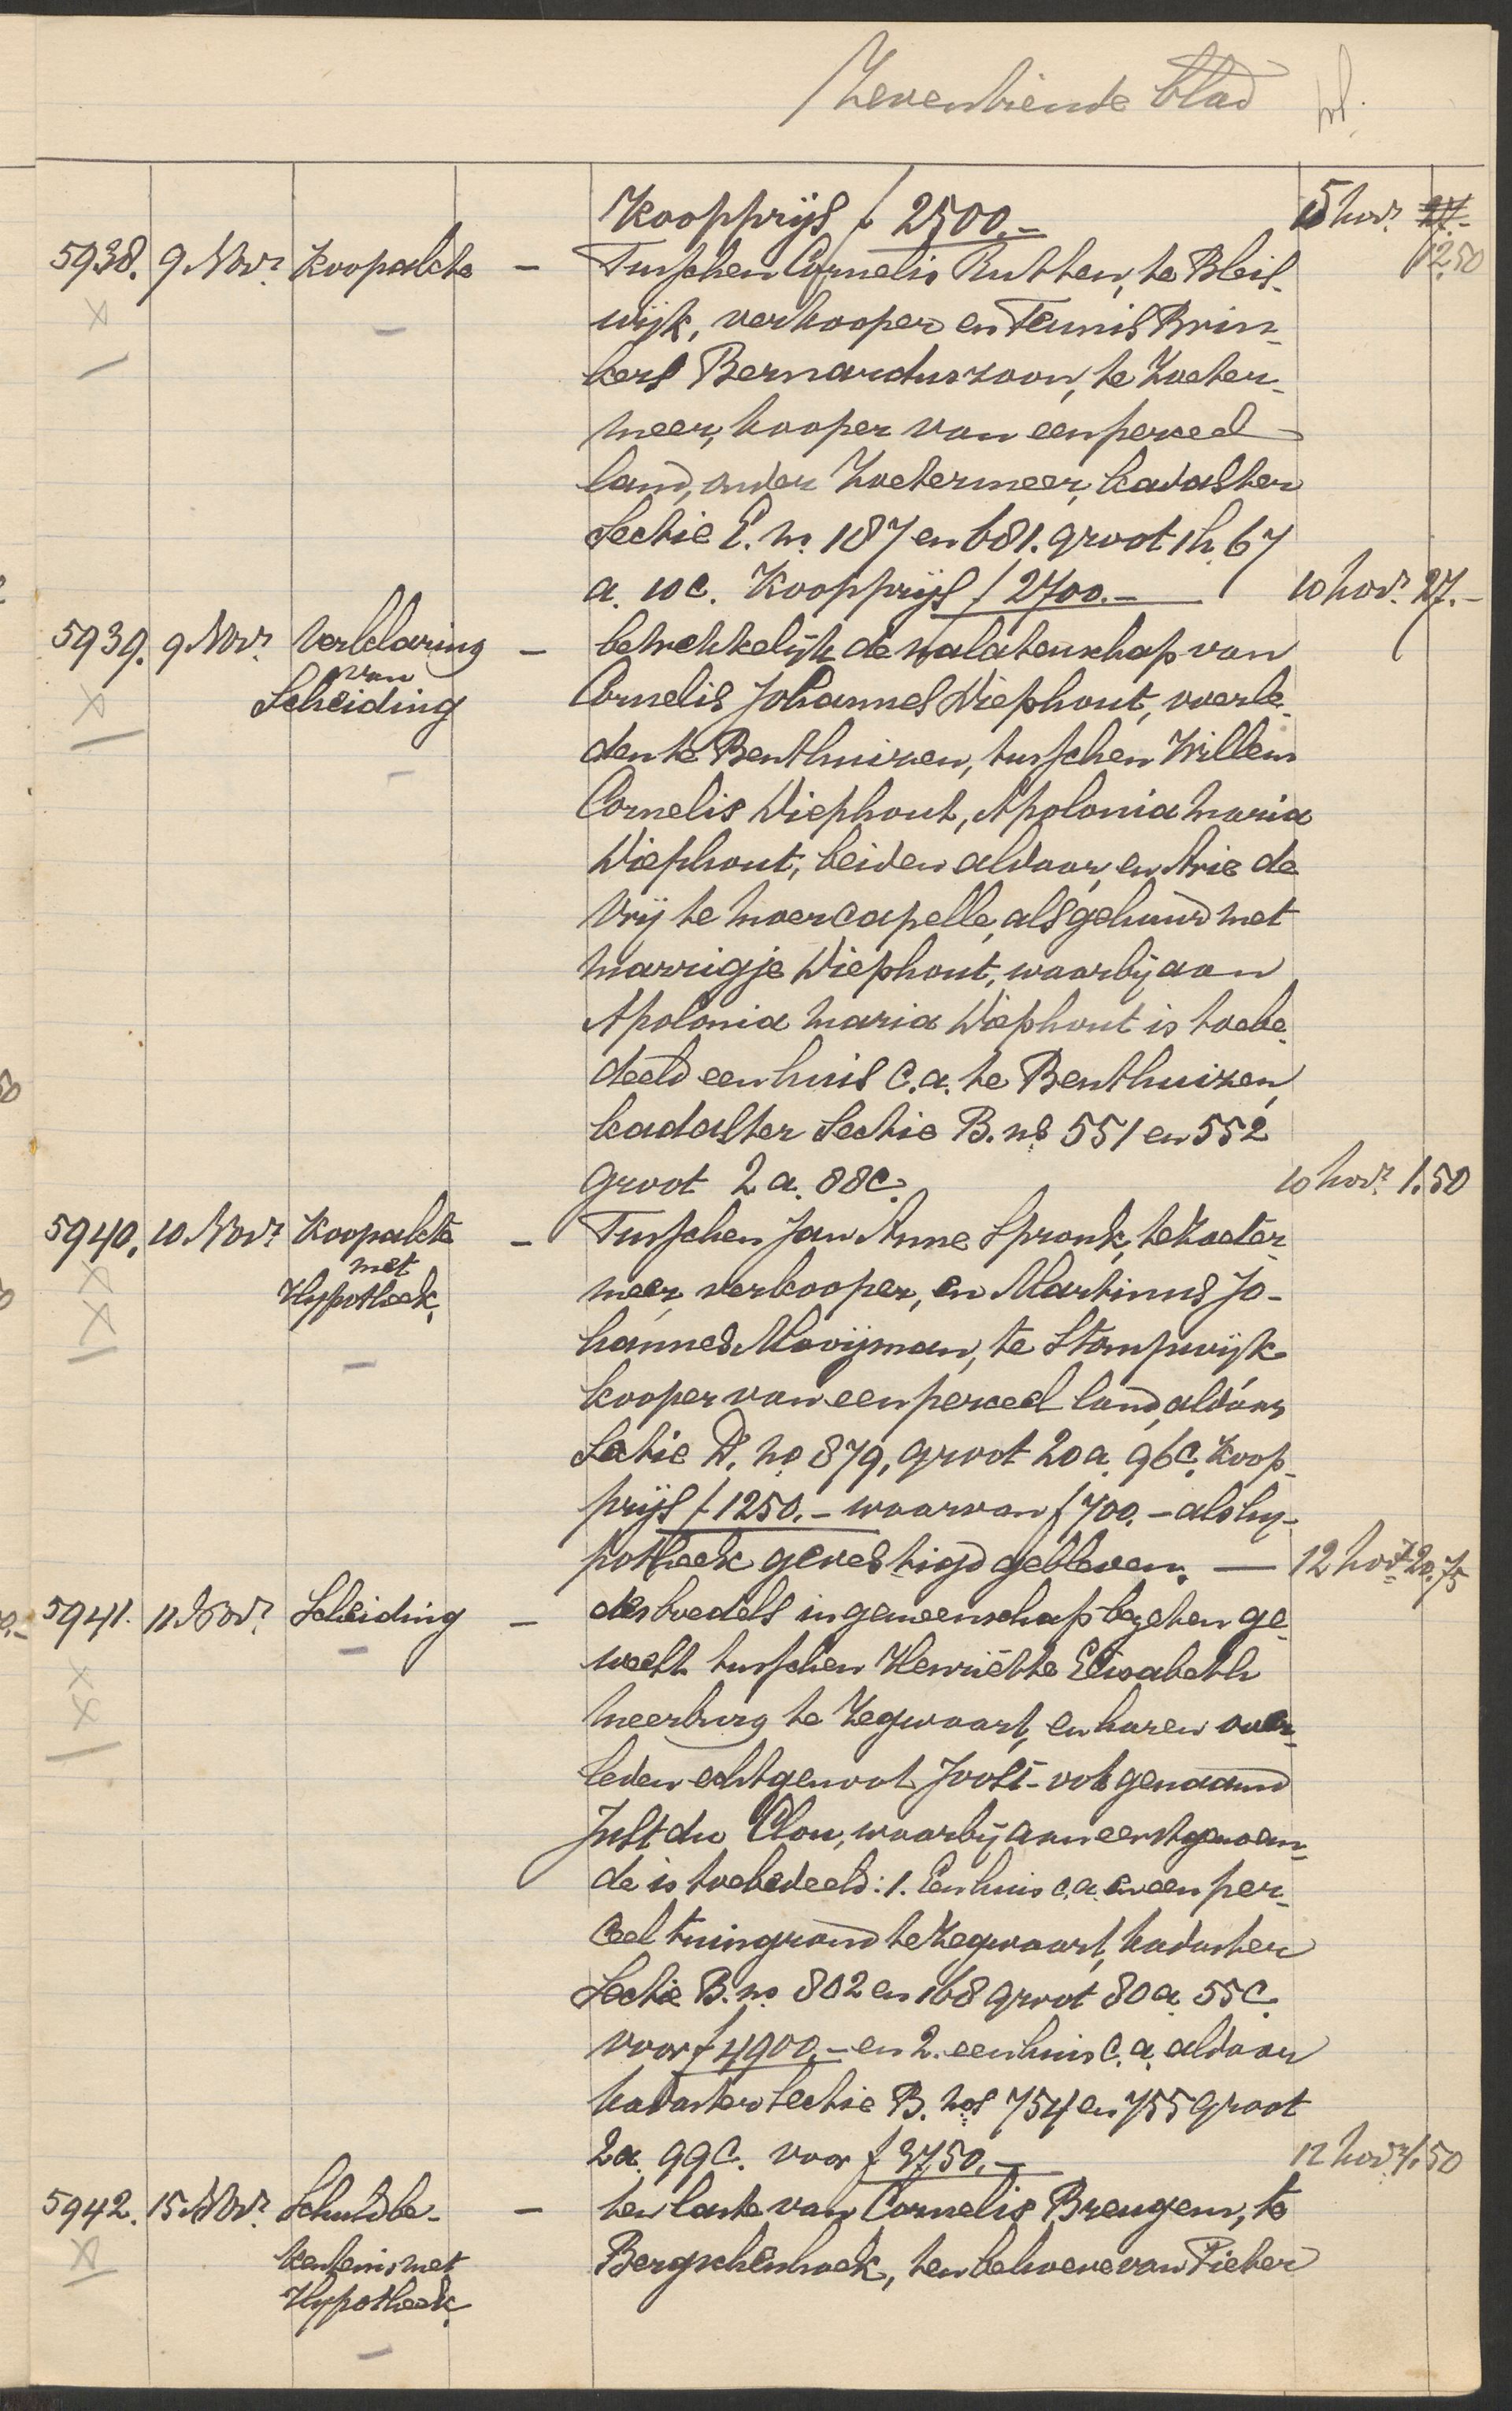 Zeventiende blad
Koopprijs f 2500.- 15 Nov. 27.-
12.50
5938. 9 Nov. Koopakte - Tusschen Cornelis Rutten, te Bleis-
wijk, verkooper en Teunis Brin-
kers Bernarduszoon, te Zoeter-
meer, kooper van een perceel
land, onder Zoetermeer, kadaster
Sectie E. no. 187 en 681. groot 1 h. 67
a. 10 c. Koopprijs f 2700.- 10 Nov. 27.-
5939. 9 Nov. Verklaring van Scheiding - betrekkelijk de nalatenschap van
Cornelis Johannes Diephout, overle-
den te Benthuizen, tusschen Willem
Cornelis Diephout, Apolonia Maria
Diephout, beiden aldaar, en Arie de
Vrij te Moercapelle, als gehuwd met
Marrigje Diephout, waarbij aan
Apolonia Maria Diephout is toebe-
deeld een huis c.a. te Benthuizen,
kadaster Sectie B. nos 551 en 552
groot 2 a. 88 c. 10 Nov. 1.50
5940. 10 Nov. Koopakte met Hypotheek. - Tusschen Jan Anne Spronk, te Zoeter-
meer, verkooper, en Martinus Jo-
hannes Mooijman, te Stompwijk
kooper van een perceel land, aldaar
Sectie D. no 879, groot 20 a. 96 c. Koop-
prijs f 1250.- waarvan f 700.- als hy-
potheek gevestigd gebleven. - 12 Nov. 20.75
5941. 11 Nov. Scheiding - des boedels in gemeenschap bezeten ge-
weest tusschen Henriëtte Elisabeth
Meerburg te Zegwaart, en haren over-
leden echtgenoot Joost - ook genaamd
Just du Clou, waarbij aan eerstgenoem-
de is toebedeeld: 1. Een huis c.a. en een per-
ceel tuingrond te Zegwaart, kadaster
Sectie B. no. 802 en 168 groot 80 a. 55 c.
voor f 4900.- en 2. een huis c.a. aldaar
kadaster Sectie B. nos 754 en 755 groot
2 a. 99 c. voor f 3750.- 12 Nov. 1.50
5942. 15 Nov. Schuldbe-
kentenis met
Hypotheek. - ten laste van Cornelis Breugem, te
Bergschenhoek, ten behoeve van Pieter